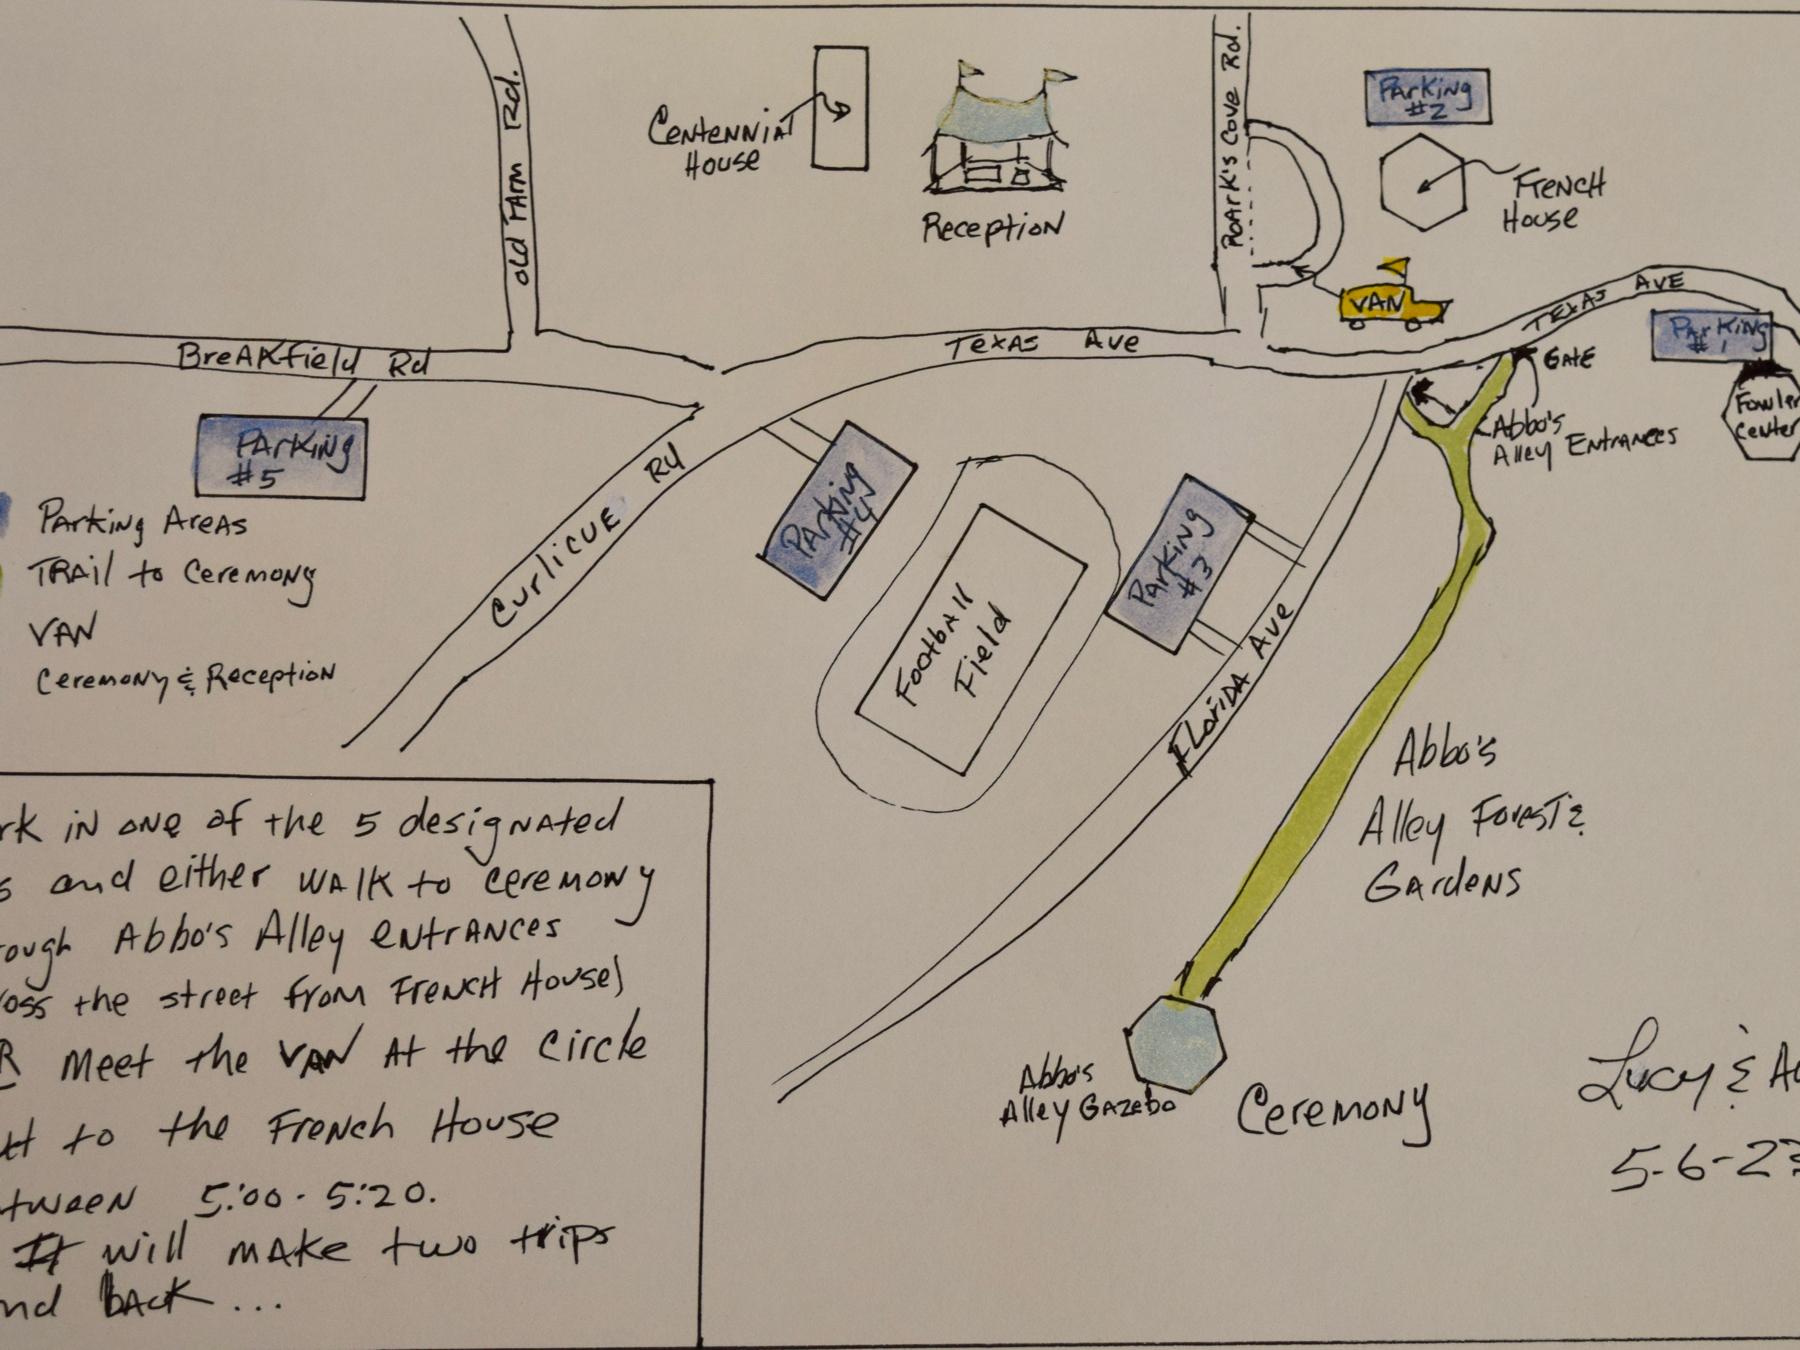 Old Farm Rd.
Centennial
House
Reception
Roark's Cove Rd.
Parking
#2
French
House
VAN
Texas Ave
Texas Ave
Parking
#1
Gate
Fowler
Center
Abbo's
Alley Entrances
Breakfield Rd
Parking
#5
Curlicue Ry
Parking
#4
Football
Field
Parking
#3
Florida Ave
Parking Areas
Trail to Ceremony
VAN
Ceremony & Reception
Abbo's
Alley Forest &
Gardens
Abbo's
Alley Gazebo
Ceremony
Lucy &
5-6-23
in one of the 5 designated
and either walk to ceremony
Abbo's Alley entrances
the street from French House)
meet the van at the circle
to the French House
5:00-5:20.
It will make two trips
back...